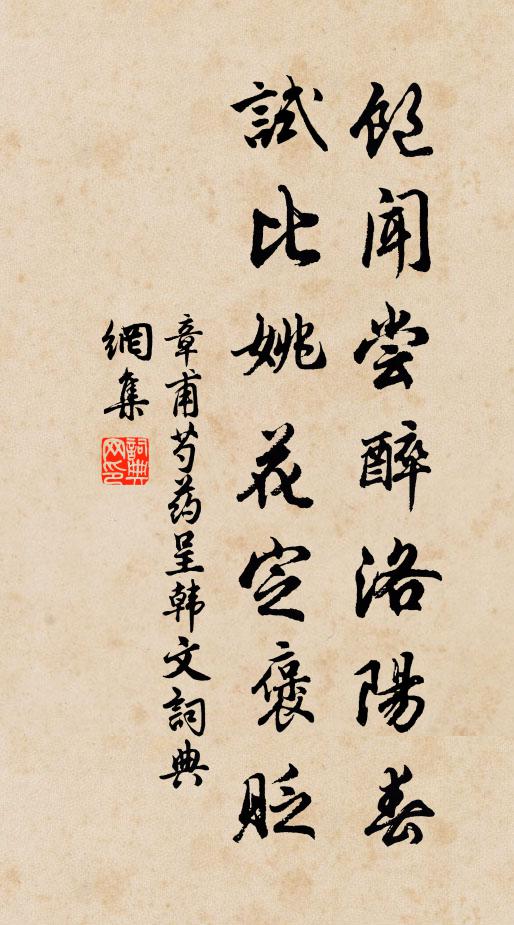 飽聞嘗醉洛陽春
試比姚花定褒貶
章甫芍药呈韩文詞典
網集
詞典網印